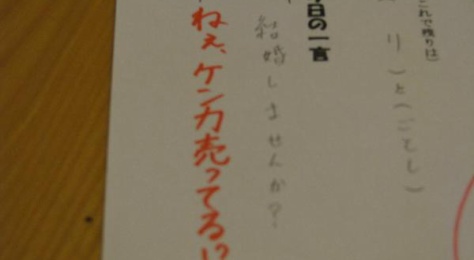 これで残りは
り)と(ごてし)
今日の一言
結婚しませんか?
ねぇ、ケンカ売ってる!?